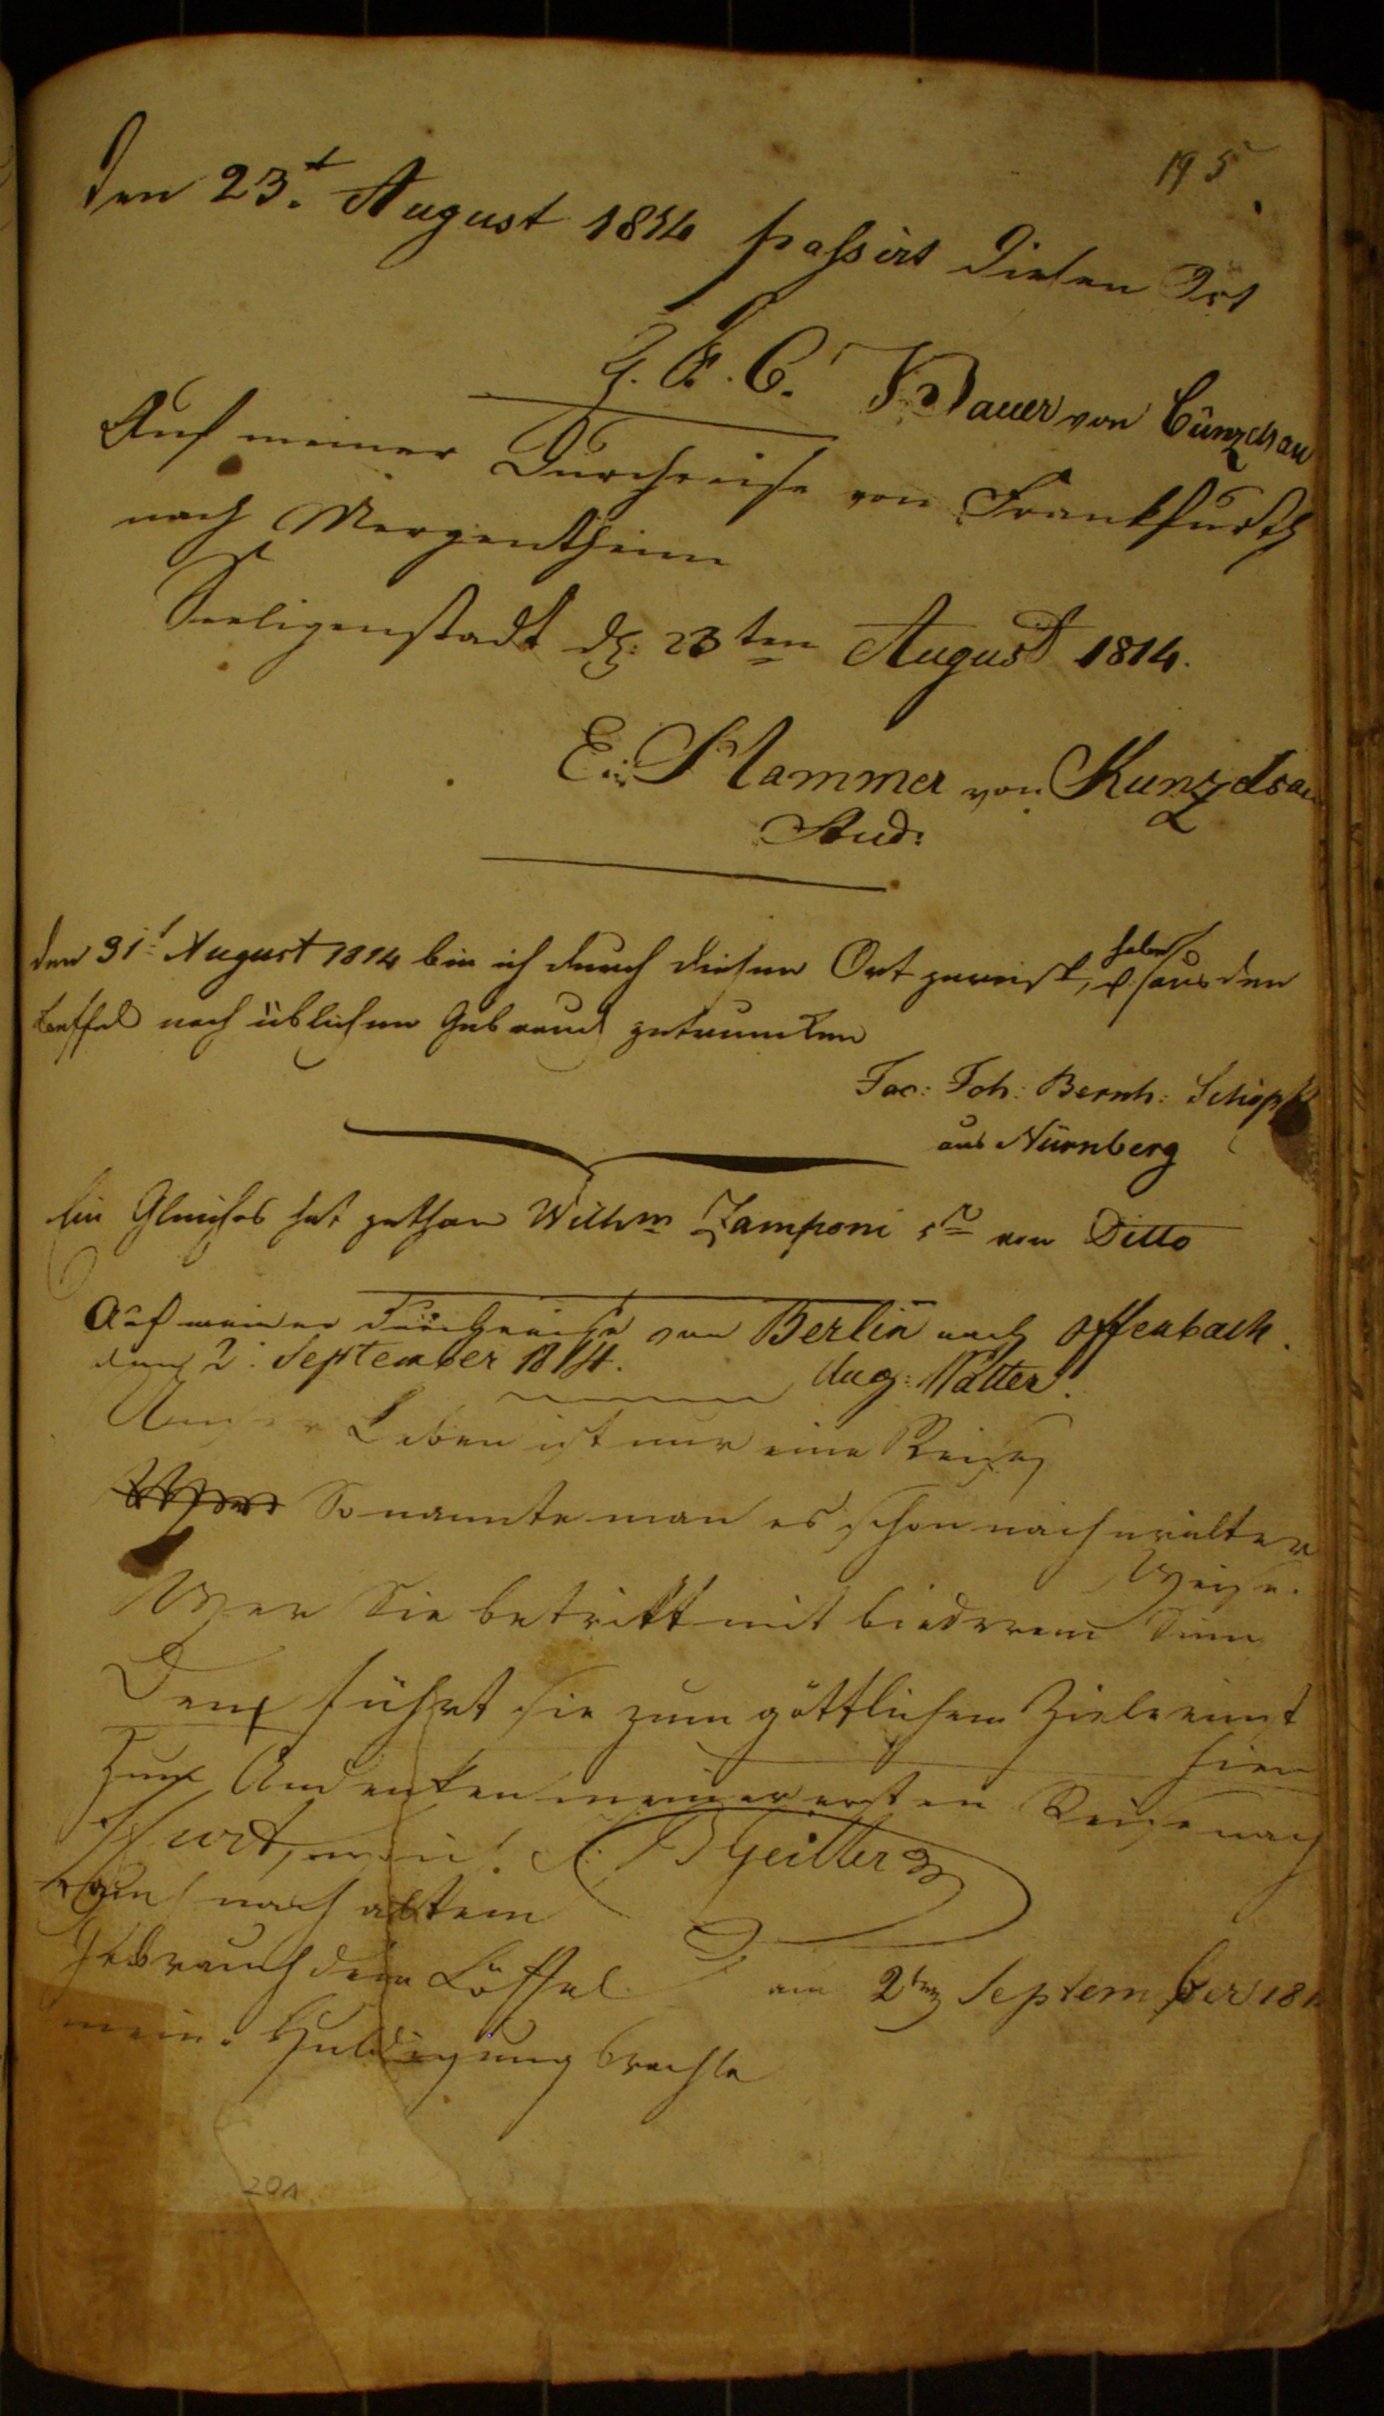 195
den 23t. August 1814 passirt diesen Ort
J. A. C. Bauer von Cünzelsau
Auf meiner Durchreise von Frankfurth
nach Mergentheim
Seeligenstadt d. 23ten August 1814.
E. Hammer von Kunzelsau
Stud:
den 31t August 1814 bin ich durch diesen Ort gereist, u. habe aus den
Löffel nach üblichem Gebrauch getruncken
Jac: Joh: Bernh: Schöpf
aus Nürnberg
Ein Gleiches hat gethan Wilhm Zamponi von Ditto
Auf meiner Durchreise von Berlin nach Offenbach.
den 2. September 1814. Aug: Natter.
Unser Leben ist nur eine Reise,
So nannte man es schon nach uralter
Weise.
Wer Sie betritt mit biederem Sinn
Den führt sie zum göttlichem Ziele einst
hin
Zum Andenken meiner ersten Reise nach
Geiller
nach altem
Gebrauch dem Löffel
am 2ten September 181
meine Huldigung brachte
201